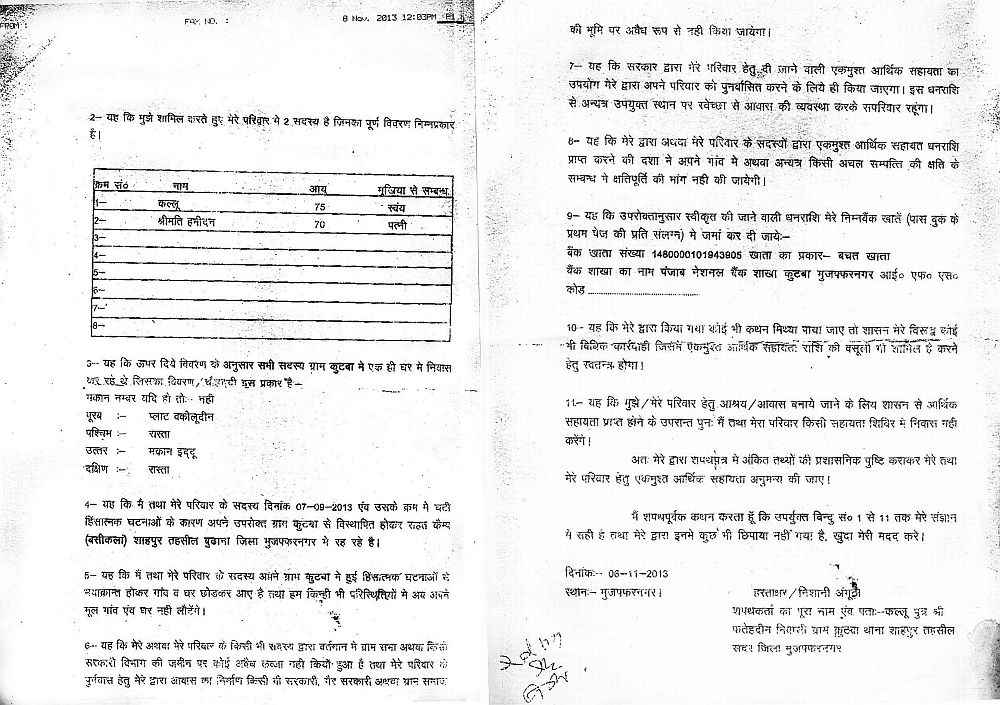 FROM :
FAX NO. :
8 Nov. 2013 12:03PM P1
2– यह कि मुझे शामिल करते हुए मेरे परिवार मे 2 सदस्य है जिनका पूर्ण विवरण निम्नप्रकार
है।
क्रम सं० नाम आयु मुखिया से सम्बन्ध
1– कल्लू 75 स्वंय
2– श्रीमति हमीदन 70 पत्नी
3–
4–
5–
6–
7–
8–
3– यह कि ऊपर दिये विवरण के अनुसार सभी सदस्य ग्राम कुटबा मे एक ही घर मे निवास
कर रहे थे जिसका विवरण/चौहद्दी इस प्रकार है–
मकान नम्बर यदि हो तोः– नही
पूरब :– प्लाट वकीलूदीन
पश्चिम :– रास्ता
उत्तर :– मकान इद्दू
दक्षिण :– रास्ता
4– यह कि मै तथा मेरे परिवार के सदस्य दिनांक 07-09-2013 एंव उसके क्रम मे घटी
हिंसात्मक घटनाओं के कारण अपने उपरोक्त ग्राम कुटबा से विस्थापित होकर राहत कैम्प
(बसीकलां) शाहपुर तहसील बुढाना जिला मुजफ्फरनगर मे रह रहे है।
5– यह कि मैं तथा मेरे परिवार के सदस्य अपने ग्राम कुटबा मे हुई हिंसात्मक घटनाओं से
भयाक्रान्त होकर गांव व घर छोडकर आए है तथा हम किन्ही भी परिस्थितियों मे अब अपने
मूल गांव एंव घर नही लौटेंगे।
6– यह कि मेरे अथवा मेरे परिवार के किसी भी सदस्य द्वारा वर्तमान मे ग्राम सभा अथवा किसी
सरकारी विभाग की जमीन पर कोई अवैध कब्जा नही किया हुआ है तथा मेरे परिवार के
पुर्नवास हेतु मेरे द्वारा आवास का निर्माण किसी भी सरकारी, गैर सरकारी अथवा ग्राम समाज
की भूमि पर अवैध रूप से नही किया जायेगा।
7– यह कि सरकार द्वारा मेरे परिवार हेतु दी जाने वाली एकमुश्त आर्थिक सहायता का
उपयोग मेरे द्वारा अपने परिवार को पुनर्वासित करने के लिये ही किया जाएगा। इस धनराशि
से अन्यत्र उपयुक्त स्थान पर स्वेच्छा से आवास की व्यवस्था करके सपरिवार रहूंगा।
8– यह कि मेरे द्वारा अथवा मेरे परिवार के सदस्यों द्वारा एकमुश्त आर्थिक सहायत धनराशि
प्राप्त करने की दशा ने अपने गांव मे अथवा अन्यत्र किसी अचल सम्पत्ति की क्षति के
सम्बन्ध मे क्षतिपूर्ति की मांग नही की जायेगी।
9– यह कि उपरोक्तानुसार स्वीकृत की जाने वाली धनराशि मेरे निम्नबैंक खातें (पास बुक के
प्रथम पेज की प्रति संलग्न) मे जमां कर दी जायेः–
बैंक खाता संख्या 1480000101943905 खाता का प्रकार– बचत खाता
बैंक शाखा का नाम पंजाब नेशनल बैंक शाखा कुटबा मुजफ्फरनगर आई० एफ० एस०
कोड ................................
10– यह कि मेरे द्वारा किया गया कोई भी कथन मिथ्या पाया जाए तो शासन मेरे विरूद्ध कोई
भी विधिक कार्यवाही जिसमें एकमुश्त आर्थिक सहायता राशि की वसूली भी शामिल है करने
हेतु स्वतन्त्र होगा।
11– यह कि मुझे/मेरे परिवार हेतु आश्रय/आवास बनाये जाने के लिय शासन से आर्थिक
सहायता प्राप्त होने के उपरान्त पुनः मैं तथा मेरा परिवार किसी सहायता शिविर मे निवास नही
करेंगे।
अतः मेरे द्वारा शपथपत्र मे अंकित तथ्यों की प्रशासनिक पुष्टि कराकर मेरे तथा
मेरे परिवार हेतु एकमुश्त आर्थिक सहायता अनुमन्य की जाए।
मैं शपथपूर्वक कथन करता हूँ कि उपर्युक्त बिन्दु सं० 1 से 11 तक मेरे संज्ञान
मे सही है तथा मेरे द्वारा इनमे कुछ भी छिपाया नहीं गया है, खुदा मेरी मदद करे।
दिनांकः– 08-11-2013
स्थानः– मुजफ्फरनगर।
हस्ताक्षर/निशानी अंगूठा
शपथकर्ता का पूरा नाम एंव पताः–कल्लू पुत्र श्री
फतेहदीन निवासी ग्राम कुटबा थाना शाहपुर तहसील
सदर जिला मुजफ्फरनगर